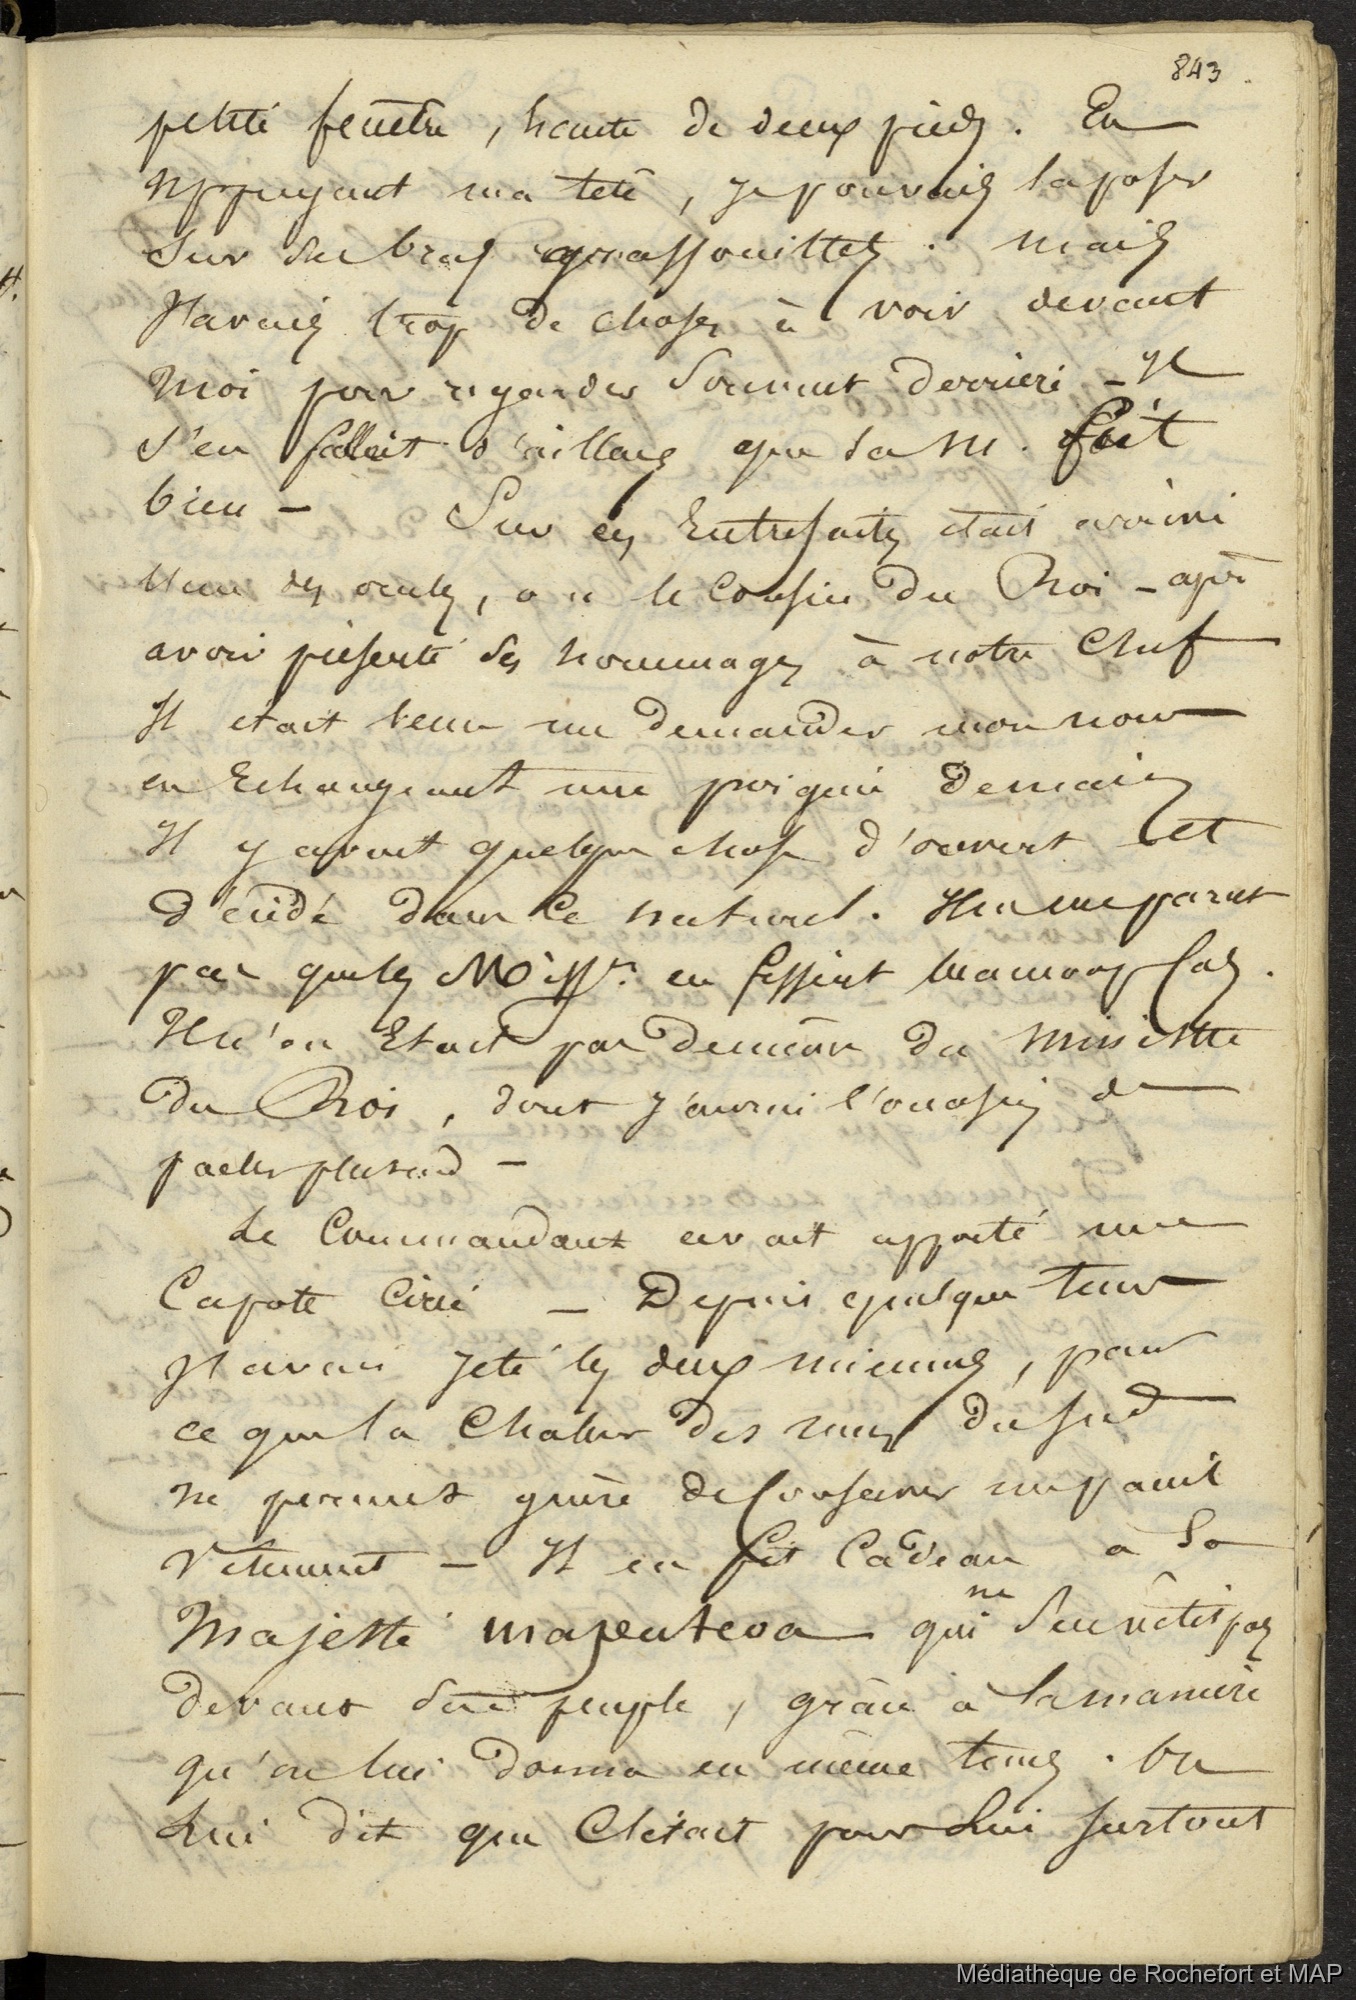 843
petite fenêtre, haute de deux pieds. En
appuyant ma tete, je pouvais la poser
sur ses bras grassouillets. mais
J'avais trop de choses à voir devant
moi pour regarder souvent derriere - Il
s'en fallait d'ailleurs que sa m. fut
bien - Sur ces Entrefaites etait arrivé
un des oncles, ou le Cousin du Roi - après
avoir présenté ses hommages à notre Chef
Il etait venu me demander mon nom
en Echangeant une poignée demain
Il y avait quelque chose d'ouvert et
dans ce naturel. Il ne me parut
pas que les Miss.res en fissent beaucoup Cas.
Il n'en Etait pas de même du ministre
du Roi, dont j'aurai l'occasion de
parler plus tard -
Le Commandant avait apporté une
Capote Cirée - Depuis quelque tems
J'avais jeté les deux miennes, par
ce que la Chaleur des mers du sud
ne permet guère de Conserver un pareil
Vetement - Il en fit Cadeau à Sa
Majesté mapouteoa qui ne s'en vêtit pas
devant son peuple, grâce à la manière
qu'on lui donna en même tems. On
Lui dit que C'était pour Lui surtout
Médiathèque de Rochefort et MAP